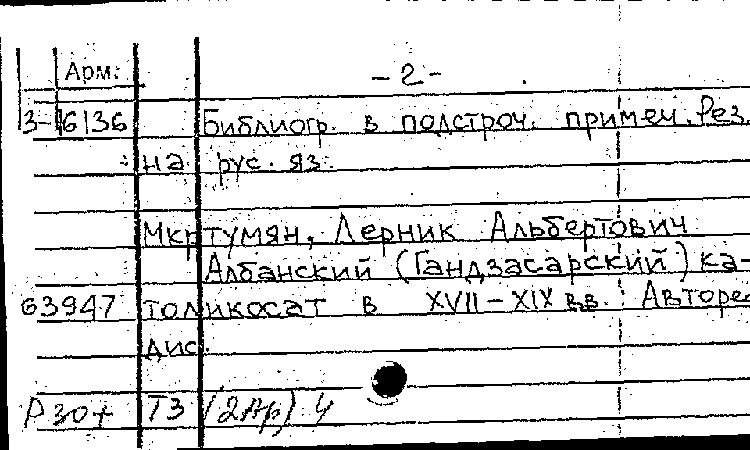 Арм. -2-
3-16136 Библиогр. в подстроч. примеч. Рез.
на рус. яз.
Мкртумян, Лерник Альбертович
Албанский (Гандзасарский) ка-
63947 толикосат в XVII-XIX вв.: Авторе
дис.
Р30+ Т3 (2Ар) 4